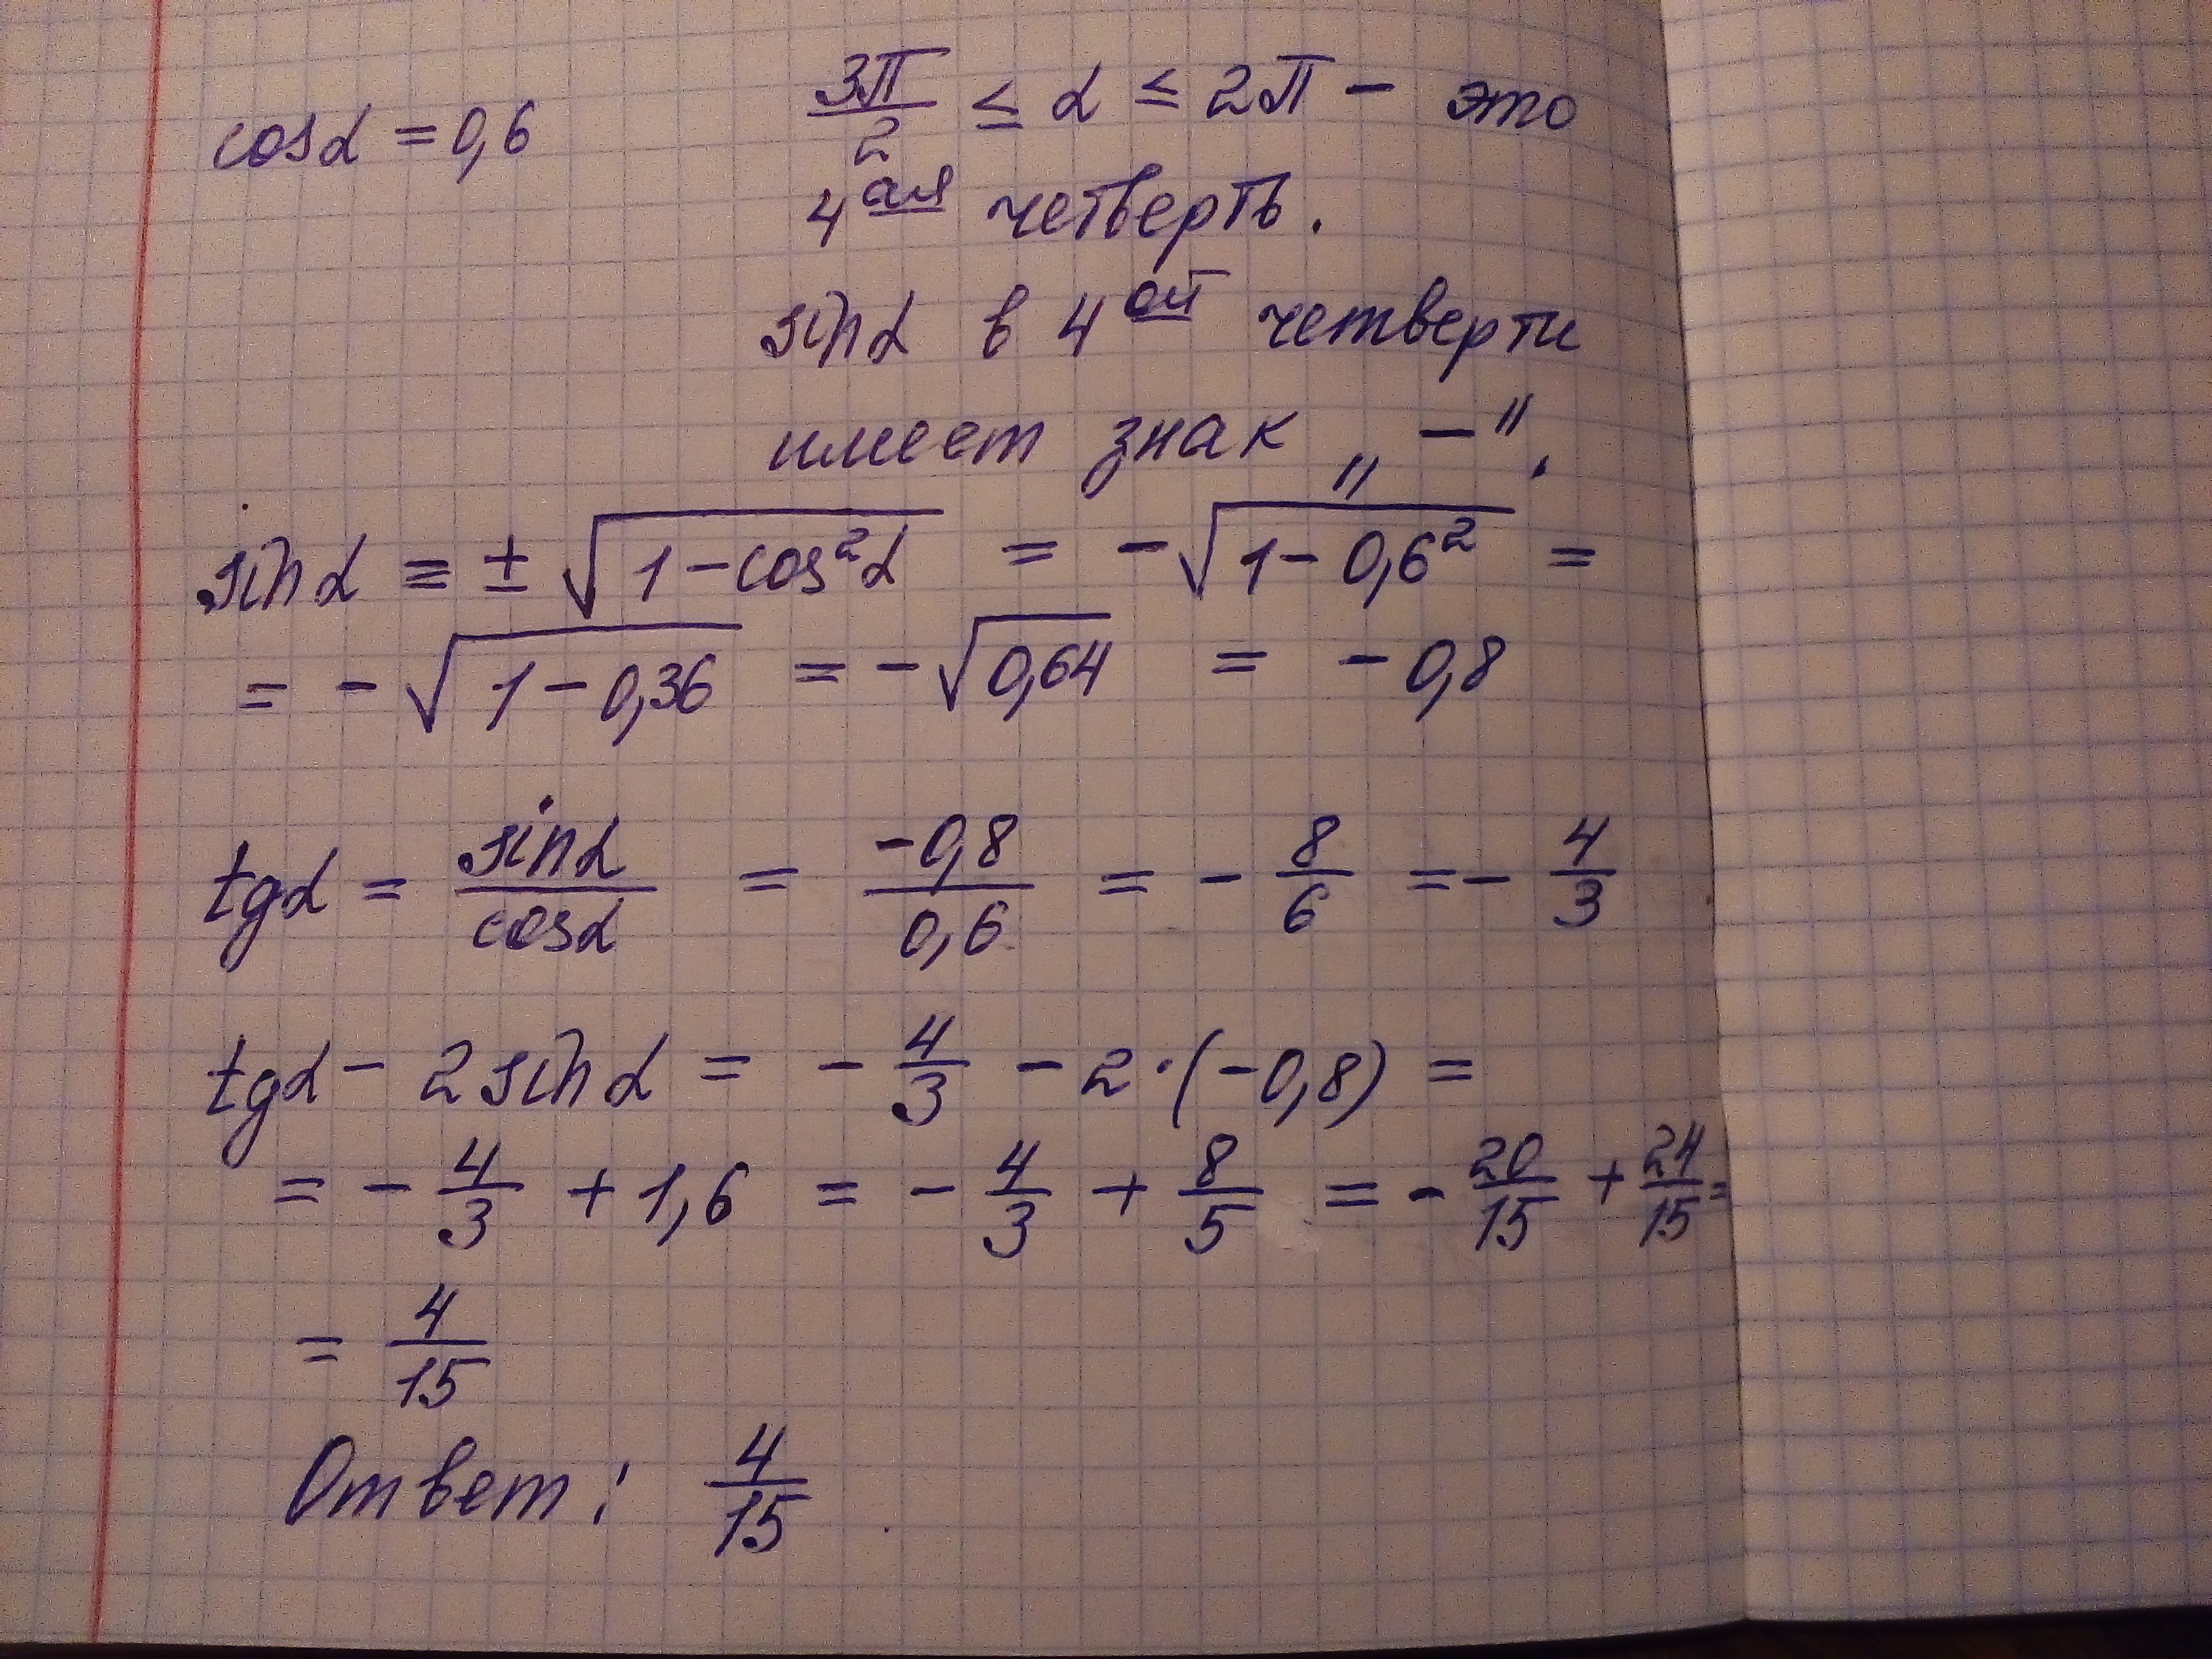 cosα = 0,6
3π/2 ≤ α ≤ 2π – это
4ая четверть.
sinα в 4ой четверти
имеет знак „–".
sinα = ± √(1–cos²α) = –√(1– 0,6²) =
= – √(1–0,36) = –√(0,64) = – 0,8
tgα = sinα/cosα = –0,8/0,6 = – 8/6 = – 4/3
tgα – 2sinα = – 4/3 – 2·(–0,8) =
= – 4/3 + 1,6 = – 4/3 + 8/5 = – 20/15 + 24/15 =
= 4/15
Ответ: 4/15